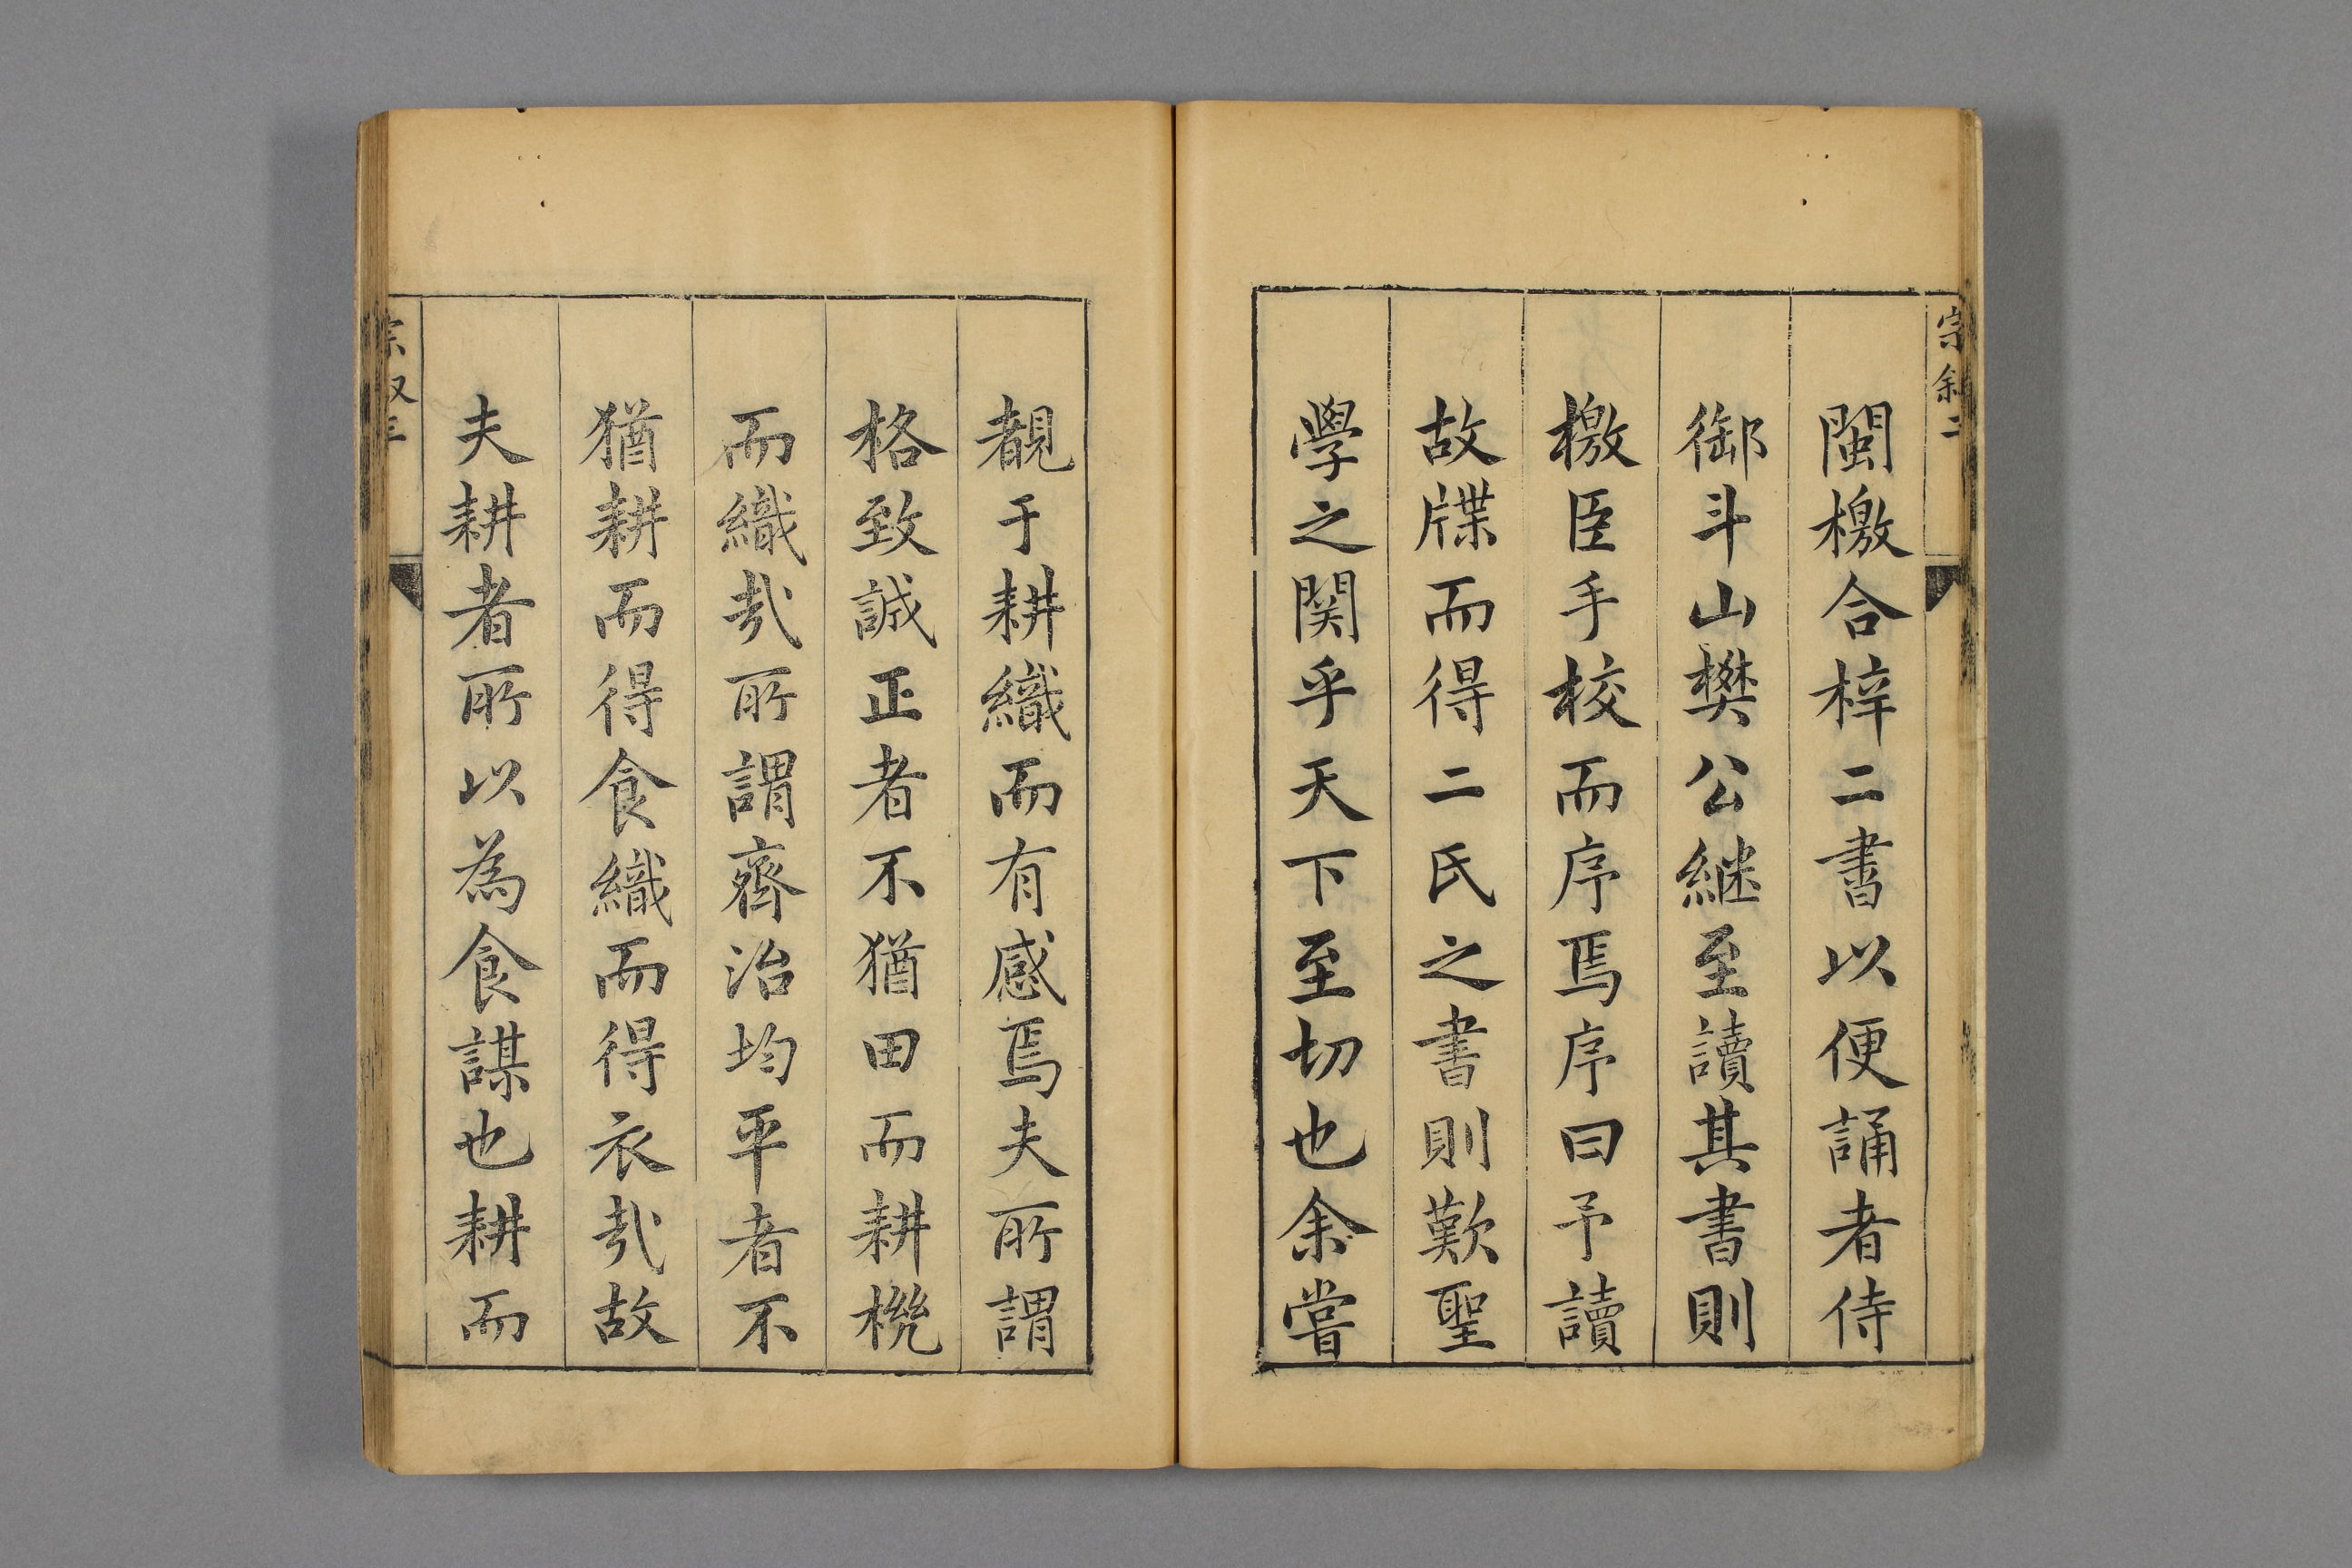 宗叙二
閩檄合梓二書以便誦者侍
御斗山樊公継至讀其書則
檄臣手校而序焉序曰予讀
故牒而得二氏之書則歎聖
學之関乎天下至切也余嘗
覩于耕織而有感焉夫所謂
格致誠正者不猶田而耕機
而織哉所謂齊治均平者不
猶耕而得食織而得衣哉故
夫耕者所以為食謀也耕而
宗叙三